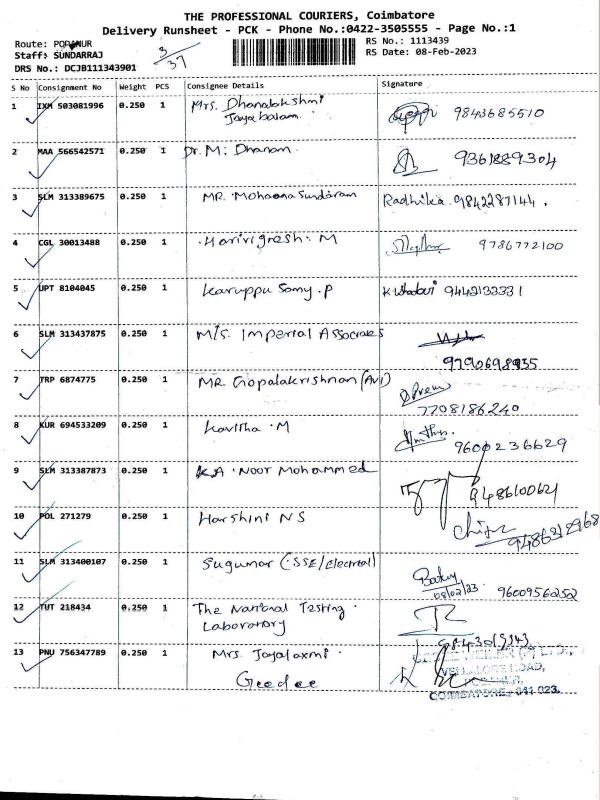 THE PROFESSIONAL COURIERS, Coimbatore
Delivery Runsheet - PCK - Phone No.:0422-3505555 - Page No.:1
Route: PODANUR
Staff: SUNDARRAJ
DRS No.: DCJB111343901
3/37
RS No.: 1113439
RS Date: 08-Feb-2023
S No Consignment No Weight PCS Consignee Details Signature
1 IXM 503081996 0.250 1 Mrs. Dhanalakshmi Jayabalam 9843685510
2 MAA 566542571 0.250 1 Dr. M. Dhanam 9361889304
3 SLM 313389675 0.250 1 MR. Mohaana Sundaram Radhika 9842287144.
4 CGL 30013488 0.250 1 Harivignesh. M 9786772100
5 UPT 8104045 0.250 1 Karuppu Samy. P 9442133331
6 SLM 313437875 0.250 1 M/s. Imperial Associates 9790698935
7 TRP 6874775 0.250 1 MR. Gopalakrishnan (Avl) 7708186240
8 KUR 694533209 0.250 1 Kavitha. M 9600236629
9 SLM 313387873 0.250 1 K.A. Noor Mohammed 9486100621
10 POL 271279 0.250 1 Harshini N S
11 SLM 313400107 0.250 1 Sugumar (SSE/Electrical) 08/02/23 9600956252
12 TUT 218434 0.250 1 The National Testing Laboratory
13 PNU 756347789 0.250 1 Mrs. Jayalaxmi
Geedee
COIMBATORE - 641 023.